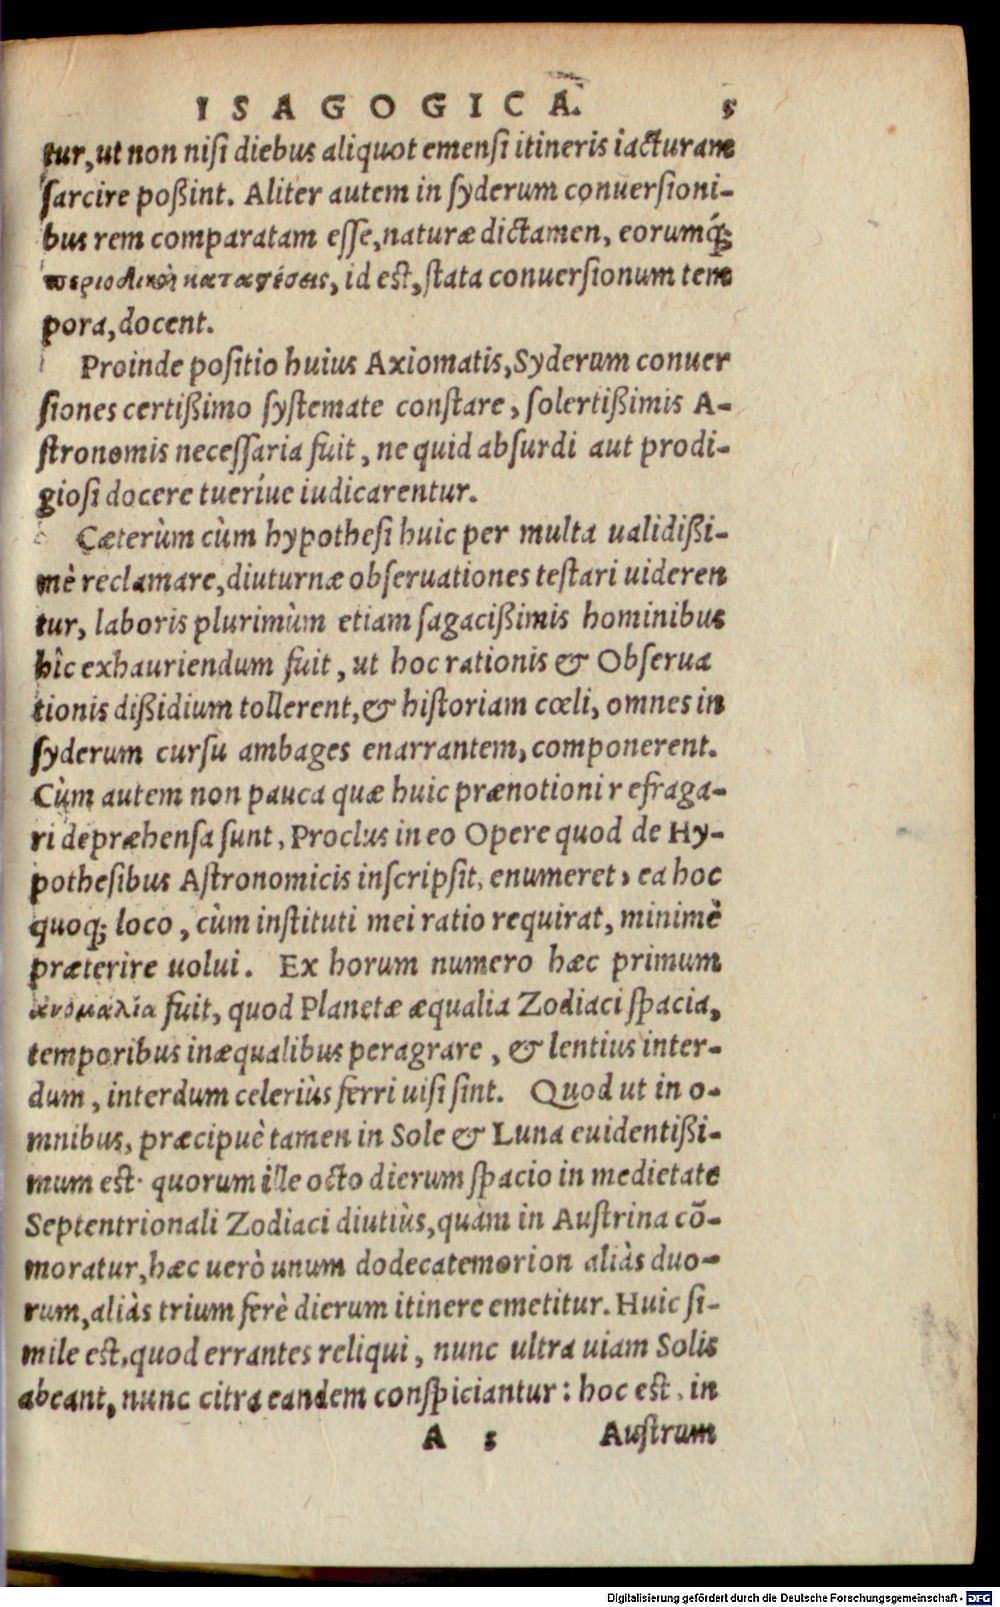 ISAGOGICA. 5
tur, ut non nisi diebus aliquot emensi itineris iacturam
sarcire poßint. Aliter autem in syderum conuersioni-
bus rem comparatam esse, naturæ dictamen, eorumq́;
περιοδικαὶ καταθέσεις, id est, stata conuersionum tem
pora, docent.
Proinde positio huius Axiomatis, Syderum conuer
siones certißimo systemate constare, solertißimis A-
stronomis necessaria fuit, ne quid absurdi aut prodi-
giosi docere tueríue iudicarentur.
Cæterùm cùm hypothesi huic per multa ualidißi-
mè reclamare, diuturnæ obseruationes testari uideren
tur, laboris plurimùm etiam sagacißimis hominibus
hîc exhauriendum fuit, ut hoc rationis & Obserua
tionis dißidium tollerent, & historiam cœli, omnes in
syderum cursu ambages enarrantem, componerent.
Cùm autem non pauca quæ huic prænotioni refraga-
ri depræhensa sunt, Proclus in eo Opere quod de Hy-
pothesibus Astronomicis inscripsit, enumeret, ea hoc
quoq; loco, cùm instituti mei ratio requirat, minimè
præterire uolui. Ex horum numero hæc primum
ἀνομαλία fuit, quod Planetæ æqualia Zodiaci spacia,
temporibus inæqualibus peragrare, & lentius inter-
dum, interdum celeriùs ferri uisi sint. Quod ut in o-
mnibus, præcipuè tamen in Sole & Luna euidentißi-
mum est. quorum ille octo dierum spacio in medietate
Septentrionali Zodiaci diutiùs, quàm in Austrina cō-
moratur, hæc uerò unum dodecatemorion aliàs duo-
rum, aliàs trium ferè dierum itinere emetitur. Huic si-
mile est, quod errantes reliqui, nunc ultra uiam Solis
abeant, nunc citra eandem conspiciantur: hoc est, in
A 5 Austrum
Digitalisierung gefördert durch die Deutsche Forschungsgemeinschaft - DFG